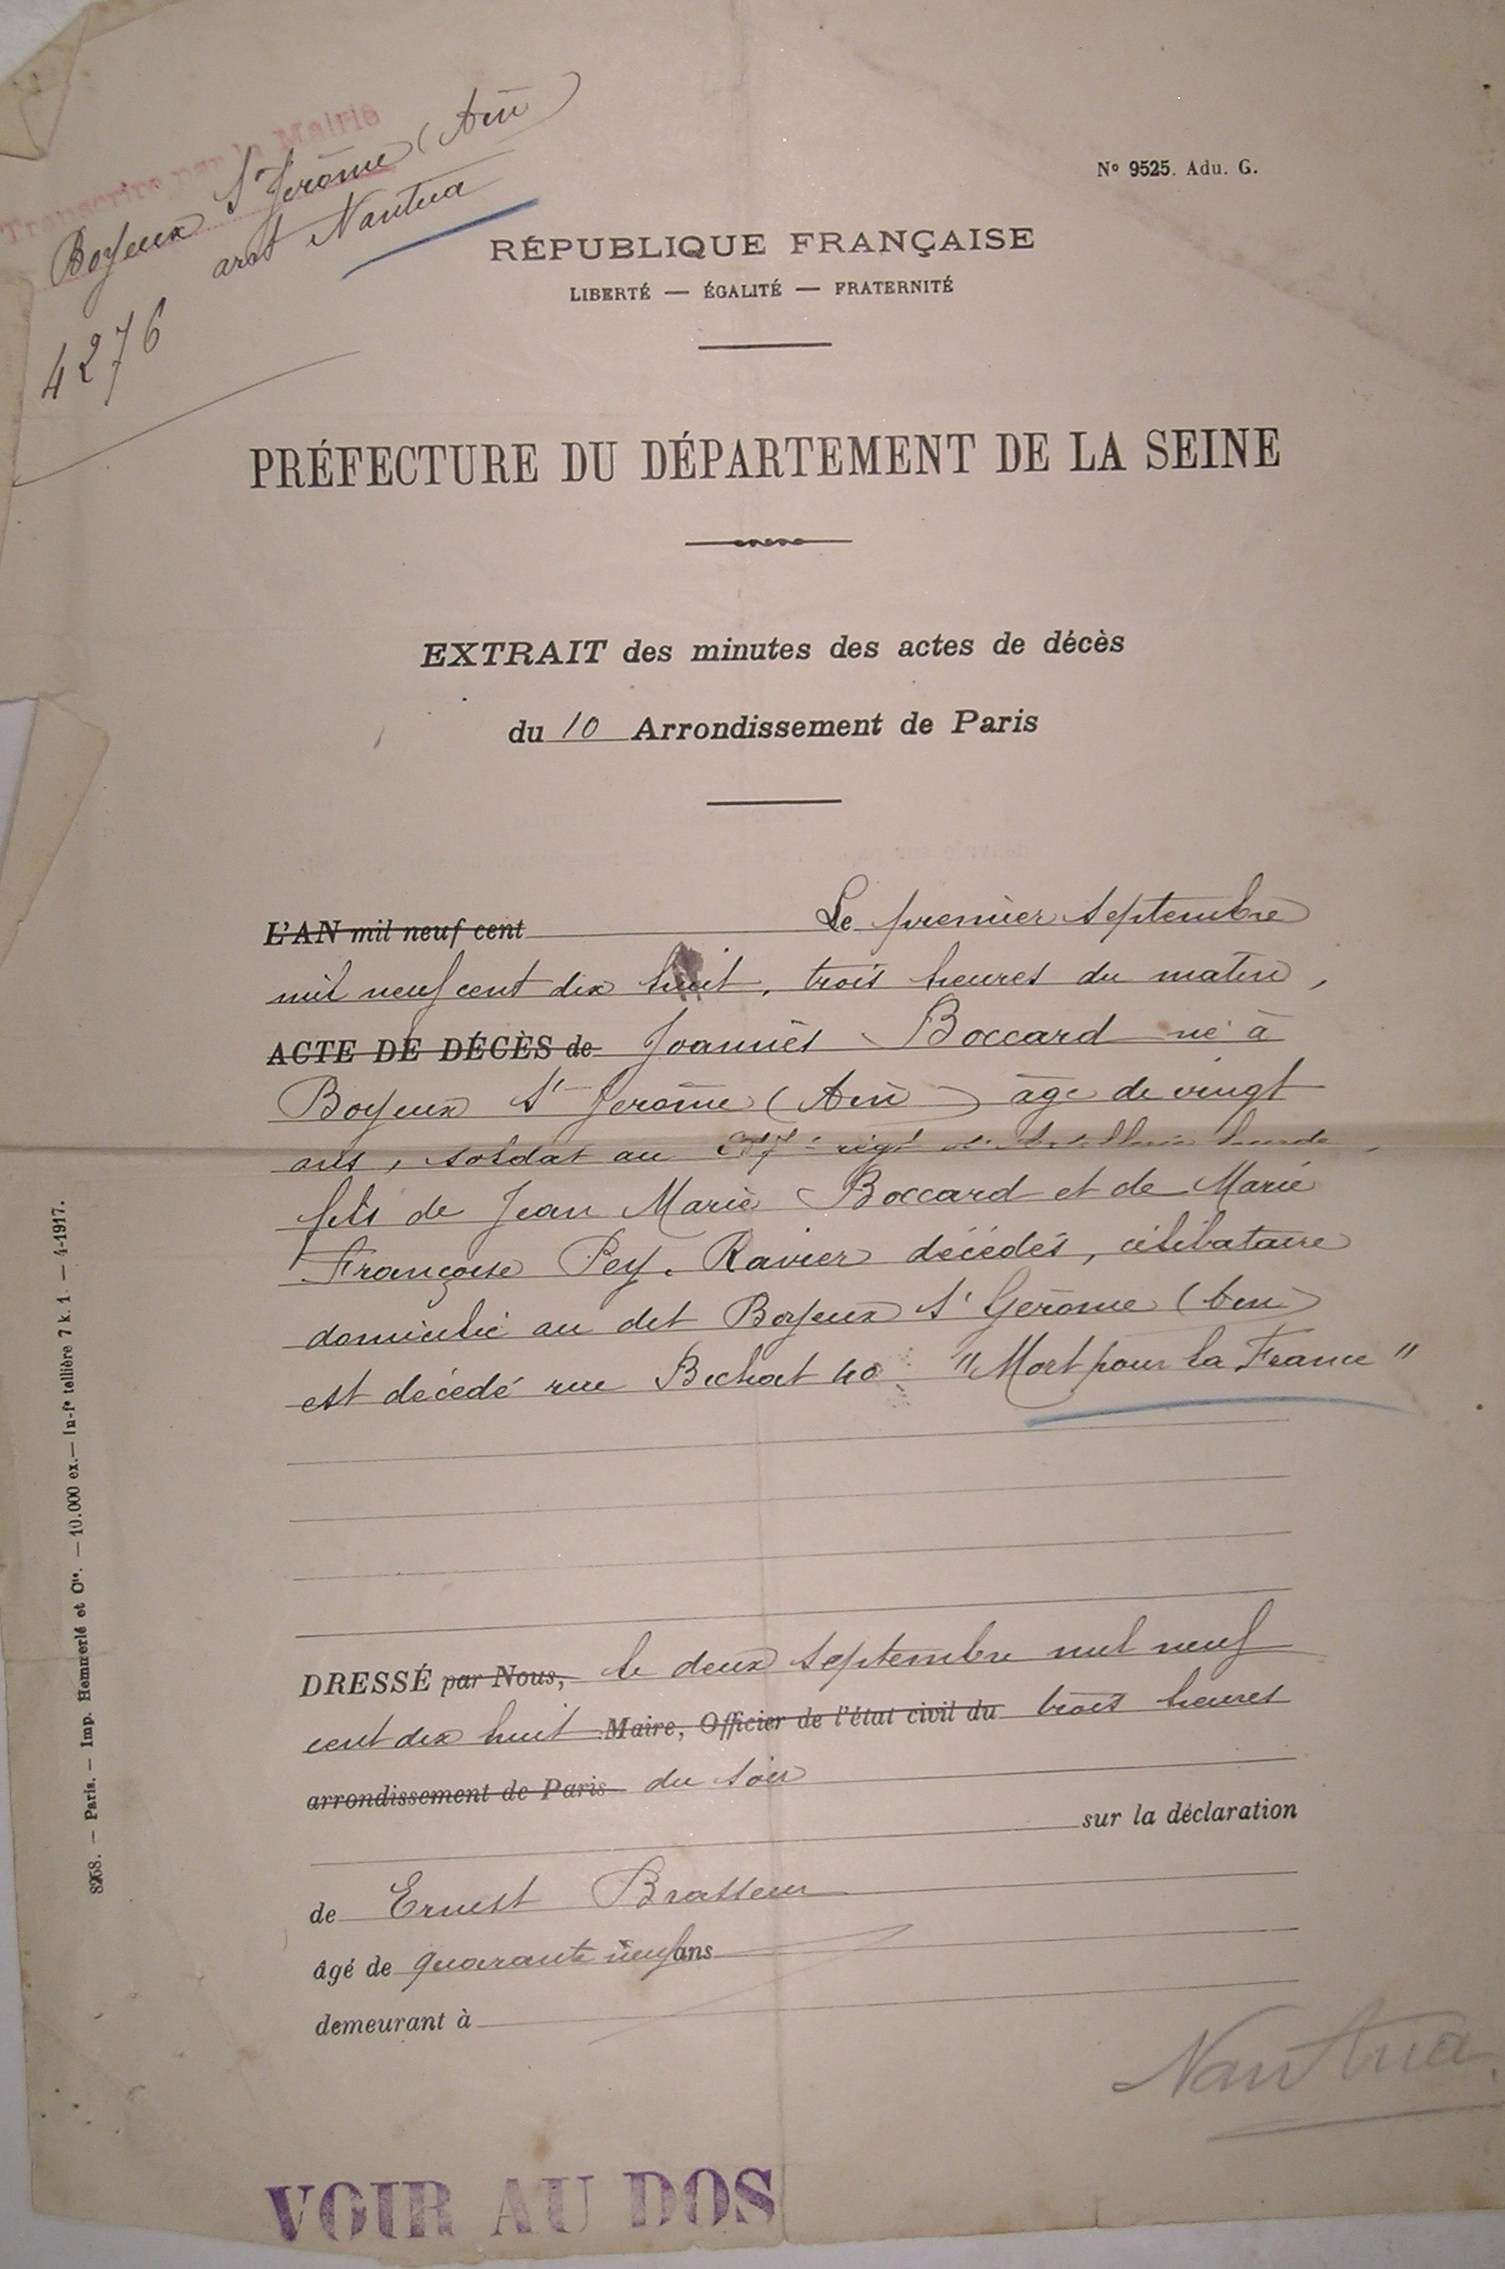 Transcrit par la Mairie
Boyeux St Jérôme (Ain)
arrt Nantua
4276
No 9525. Adu. G.
RÉPUBLIQUE FRANÇAISE
LIBERTÉ — ÉGALITÉ — FRATERNITÉ
PRÉFECTURE DU DÉPARTEMENT DE LA SEINE
EXTRAIT des minutes des actes de décès
du 10 Arrondissement de Paris
L'AN mil neuf cent Le premier septembre
mil neuf cent dix huit, trois heures du matin,
ACTE DE DÉCÈS de Joannès Boccard né à
Boyeux St Jérôme (Ain) âgé de vingt
ans, soldat au régt d'Artillerie lourde,
fils de Jean Marie Boccard et de Marie
Françoise Pey. Ravier décédés, célibataire
domicilié au dit Boyeux St Gérome (Ain)
est décédé rue Bichat 40 "Mort pour la France"
DRESSÉ par Nous, le deux septembre mil neuf
cent dix huit Maire, Officier de l'état civil du trois heures
arrondissement de Paris du soir
sur la déclaration
de Ernest Brasseur
âgé de quarante neuf ans
demeurant à
Nantua
VOIR AU DOS
8268. — Paris. — Imp. Hemmerlé et Cie. — 10.000 ex. — In-fo tellière 7 k. 1 — 4-1917.